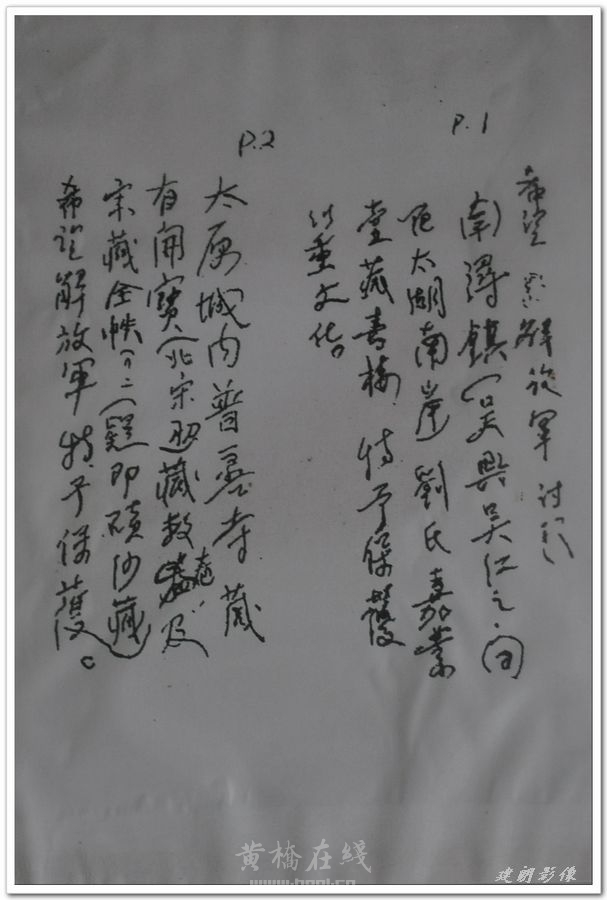 P.1
希望 解放军对於
南潯鎮（吴興吴江之间
太湖南岸劉氏嘉業
堂藏書楼 特予保護
以重文化。
P.2
太原城内普善寺藏
有開寶（北宋）藏数卷及
宋藏全帙（疑即磧沙藏）
希望解放軍特予保護。
黄橋在綫
建朗影像